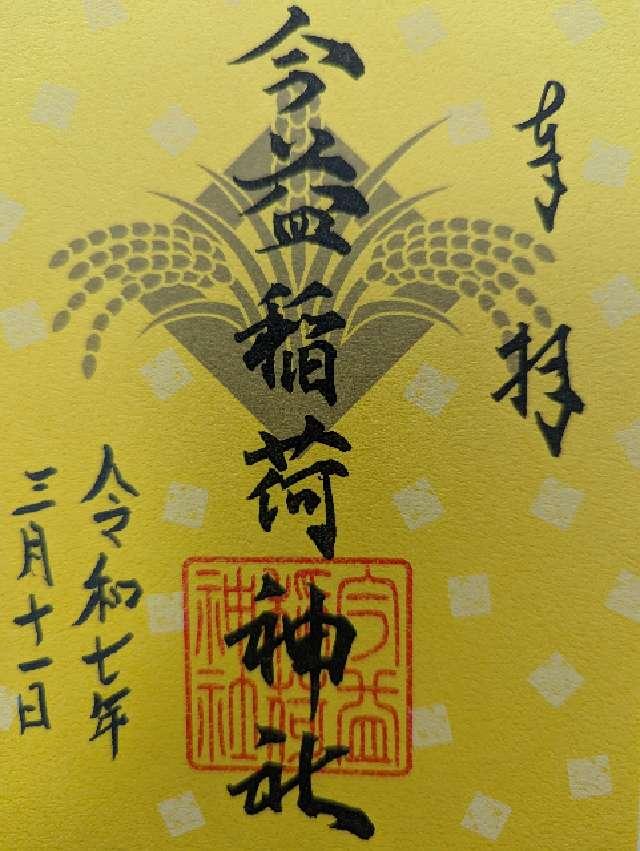 奉拝
今益稲荷神社
今益
稲荷
神社
令和七年
三月十一日